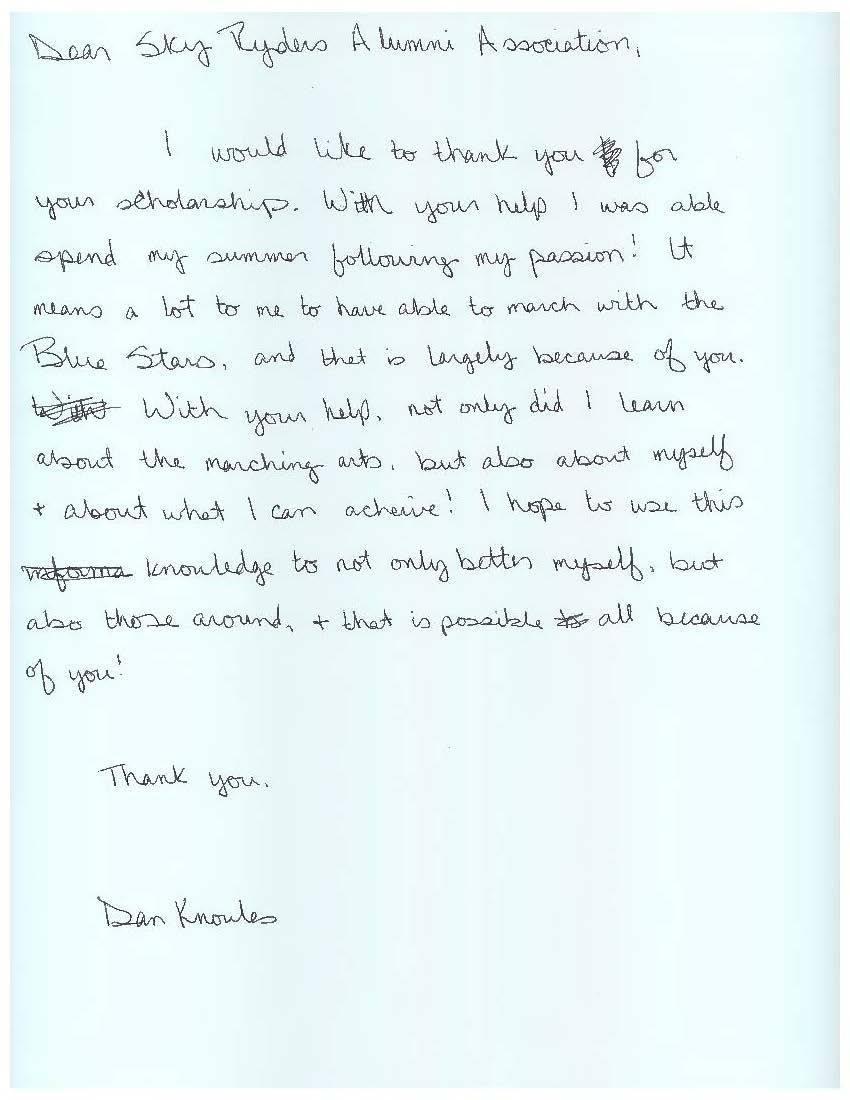 Dear Sky Ryders Alumni Association,
I would like to thank you for
your scholarship. With your help I was able
spend my summer following my passion! It
means a lot to me to have able to march with the
Blue Stars, and that is largely because of you.
With your help, not only did I learn
about the marching arts, but also about myself
+ about what I can acheive! I hope to use this
knowledge to not only better myself, but
also those around, + that is possible all because
of you!
Thank you.
Dan Knowles